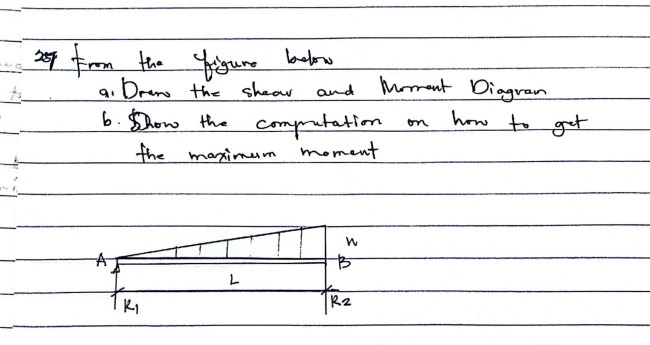 From the figure below
a. Draw the shear and Moment Diagram
b. Show the computation on how to get
the maximum moment
W
A B
L
R1 R2